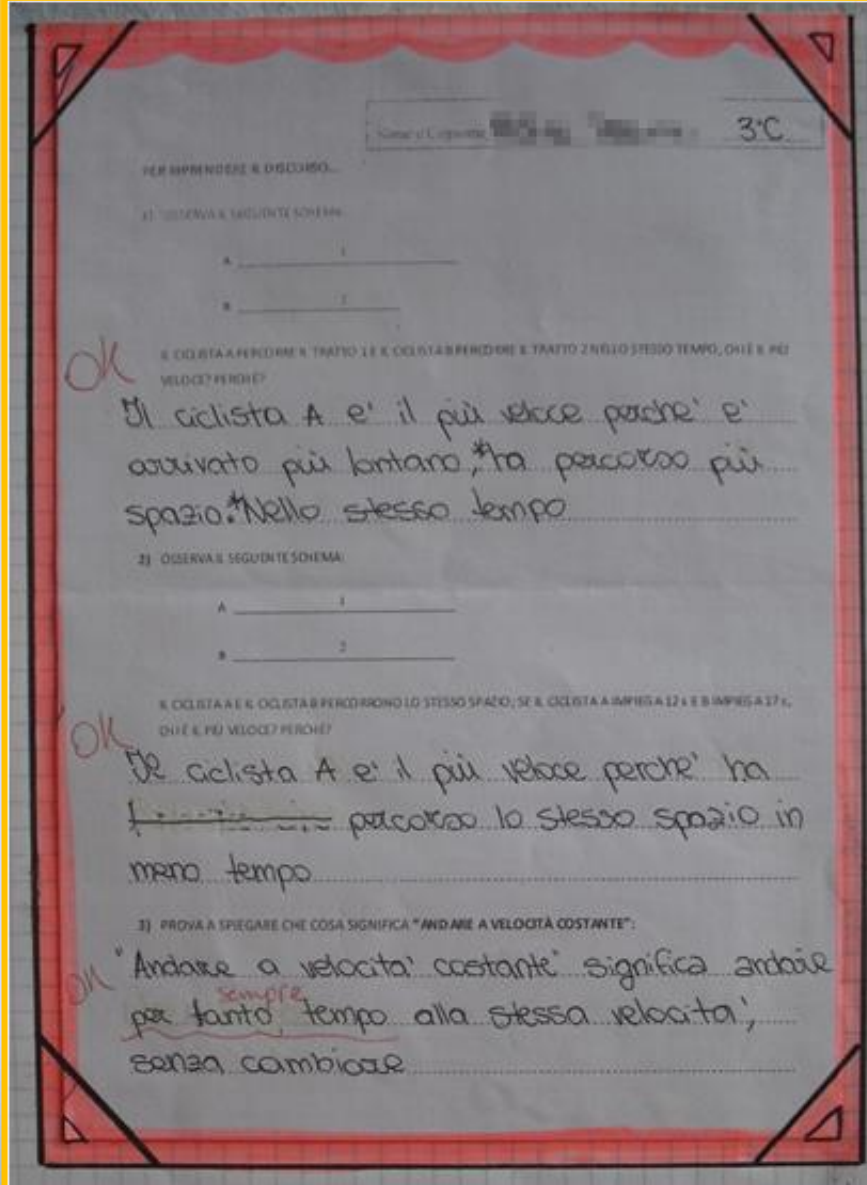 Nome e Cognome 3°C
PER RIPRENDERE IL DISCORSO...
1) OSSERVA IL SEGUENTE SCHEMA:
A 1
B 2
OK
IL CICLISTA A PERCORRE IL TRATTO 1 E IL CICLISTA B PERCORRE IL TRATTO 2 NELLO STESSO TEMPO, CHI È IL PIÙ
VELOCE? PERCHÉ?
Il ciclista A e' il più veloce perche' e'
arrivato più lontano,*ha percorso più
spazio.*Nello stesso tempo
2) OSSERVA IL SEGUENTE SCHEMA:
A 1
B 2
OK
IL CICLISTA A E IL CICLISTA B PERCORRONO LO STESSO SPAZIO; SE IL CICLISTA A IMPIEGA 12 s E B IMPIEGA 17 s,
CHI È IL PIÙ VELOCE? PERCHÉ?
Il ciclista A e' il più veloce perche' ha
percorso lo stesso spazio in
meno tempo
3) PROVA A SPIEGARE CHE COSA SIGNIFICA "ANDARE A VELOCITÀ COSTANTE":
OK
"Andare a velocita' costante" significa andare
sempre
per tanto tempo alla stessa velocita',
senza cambiare